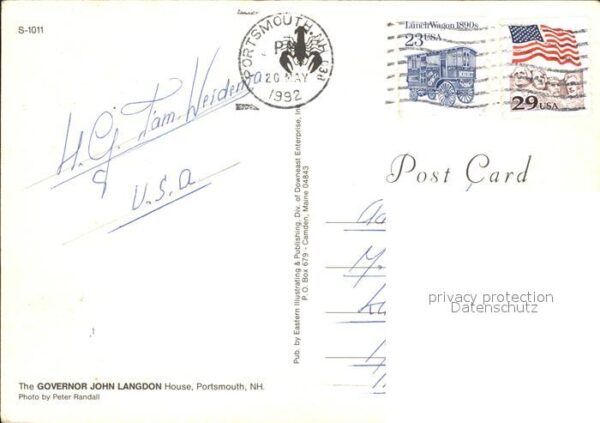 S-1011
PORTSMOUTH, NH 038
PM
20 MAY
1992
Lunch Wagon 1890s
23 USA
29 USA
H. G. Fam. Weidema
U.S.A
Post Card
Pub. by Eastern Illustrating & Publishing, Div. of Downeast Enterprise, Inc.
P.O. Box 679 - Camden, Maine 04843
privacy protection
Datenschutz
The GOVERNOR JOHN LANGDON House, Portsmouth, NH.
Photo by Peter Randall